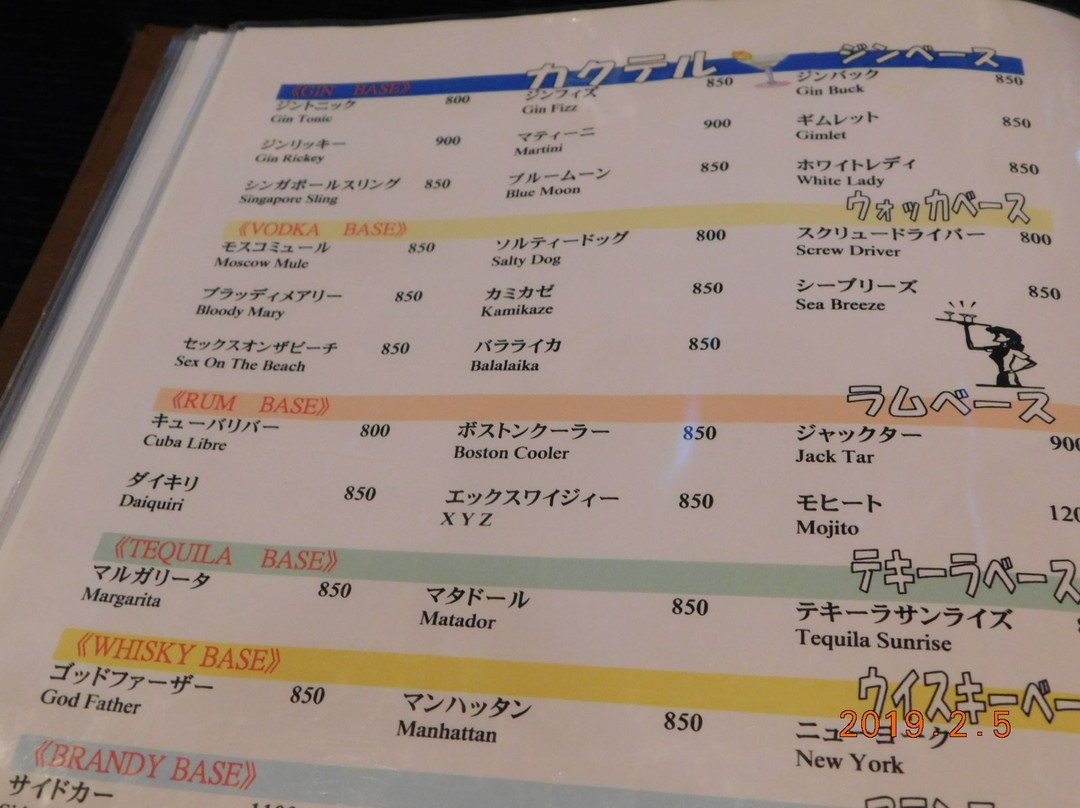 カクテル
《GIN BASE》 ジンベース
ジントニック 800 ジンフィズ 850 ジンバック 850
Gin Tonic Gin Fizz Gin Buck
ジンリッキー 900 マティーニ 900 ギムレット 850
Gin Rickey Martini Gimlet
シンガポールスリング 850 ブルームーン 850 ホワイトレディ 850
Singapore Sling Blue Moon White Lady
《VODKA BASE》 ウォッカベース
モスコミュール 850 ソルティードッグ 800 スクリュードライバー 800
Moscow Mule Salty Dog Screw Driver
ブラッディメアリー 850 カミカゼ 850 シーブリーズ 850
Bloody Mary Kamikaze Sea Breeze
セックスオンザビーチ 850 バラライカ 850
Sex On The Beach Balalaika
《RUM BASE》 ラムベース
キューバリバー 800 ボストンクーラー 850 ジャックター 900
Cuba Libre Boston Cooler Jack Tar
ダイキリ 850 エックスワイジィー 850 モヒート 120
Daiquiri X Y Z Mojito
《TEQUILA BASE》 テキーラベース
マルガリータ 850 マタドール 850 テキーラサンライズ
Margarita Matador Tequila Sunrise
《WHISKY BASE》 ウイスキーベー
ゴッドファーザー 850 マンハッタン 850 ニューヨーク
God Father Manhattan New York
《BRANDY BASE》
サイドカー
2019.2.5